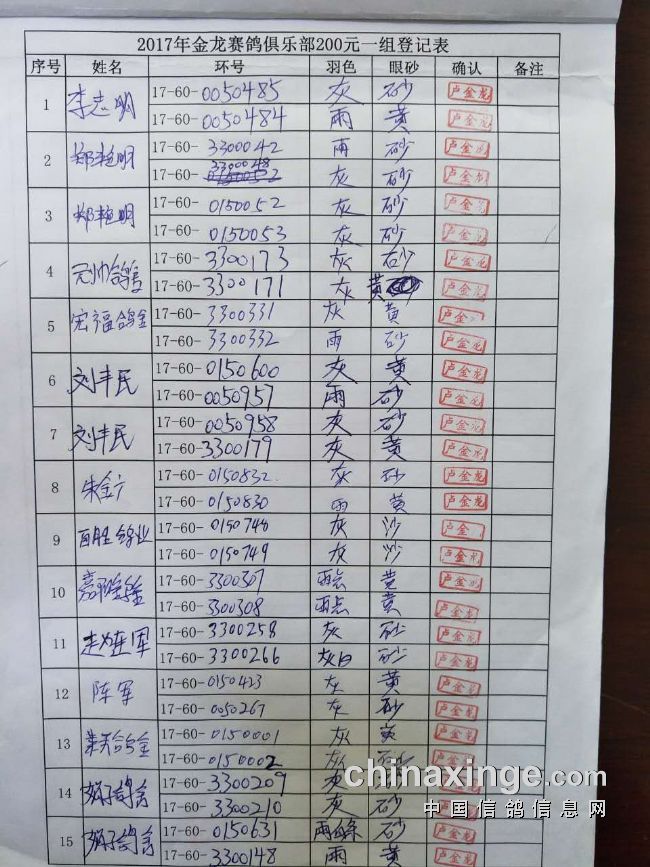 2017年金龙赛鸽俱乐部200元一组登记表
序号 姓名 环号 羽色 眼砂 确认 备注
1 李志明 17-60-0050485 灰 砂 卢金龙
17-60-0050484 雨 黄 卢金龙
2 郑艳明 17-60-3300042 雨 砂 卢金龙
17-60-3300048 灰 砂 卢金龙
3 郑艳明 17-60-0150052 灰 砂 卢金龙
17-60-0150053 灰 砂 卢金龙
4 元帅鸽舍 17-60-3300173 灰 砂 卢金龙
17-60-3300171 灰 黄 卢金龙
5 宏福鸽舍 17-60-3300331 灰 黄 卢金龙
17-60-3300332 雨 砂 卢金龙
6 刘丰民 17-60-0150600 灰 黄 卢金龙
17-60-0050957 雨 砂 卢金龙
7 刘丰民 17-60-0050958 灰 砂 卢金龙
17-60-3300179 灰 黄 卢金龙
8 朱金广 17-60-0150832 灰 砂 卢金龙
17-60-0150830 雨 黄 卢金龙
9 百胜鸽业 17-60-0150748 灰 沙 卢金龙
17-60-0150749 灰 沙 卢金龙
10 17-60-3300307 雨点 黄 卢金龙
17-60-3300308 雨点 黄 卢金龙
11 赵连军 17-60-3300258 灰 砂 卢金龙
17-60-3300266 灰白 砂 卢金龙
12 陈军 17-60-0150423 灰 黄 卢金龙
17-60-0050267 灰 砂 卢金龙
13 鸽舍 17-60-0150001 灰 黄 卢金龙
17-60-0150002 灰 砂 卢金龙
14 娟子鸽舍 17-60-3300209 灰 卢金龙
17-60-3300210 灰 砂 卢金龙
15 娟子鸽舍 17-60-0150631 雨白条 砂 卢金龙
17-60-3300148 雨 黄 卢金龙
chinaxinge.com
中国信鸽信息网